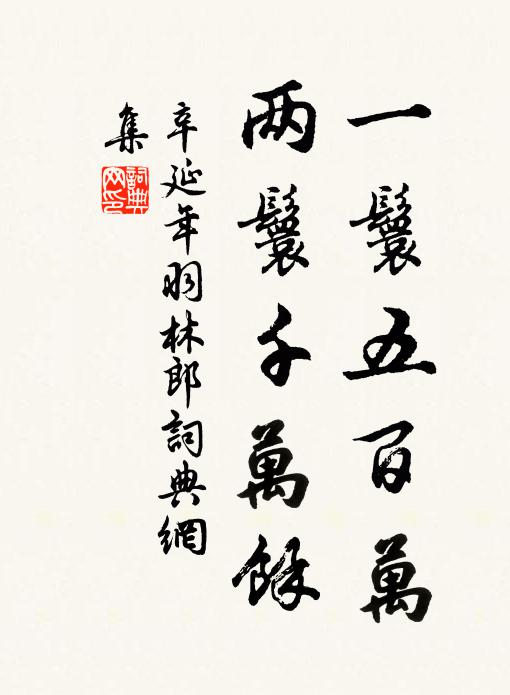 一鬟五百萬
两鬟千萬餘
辛延年羽林郎詞典網
集
詞典
网印